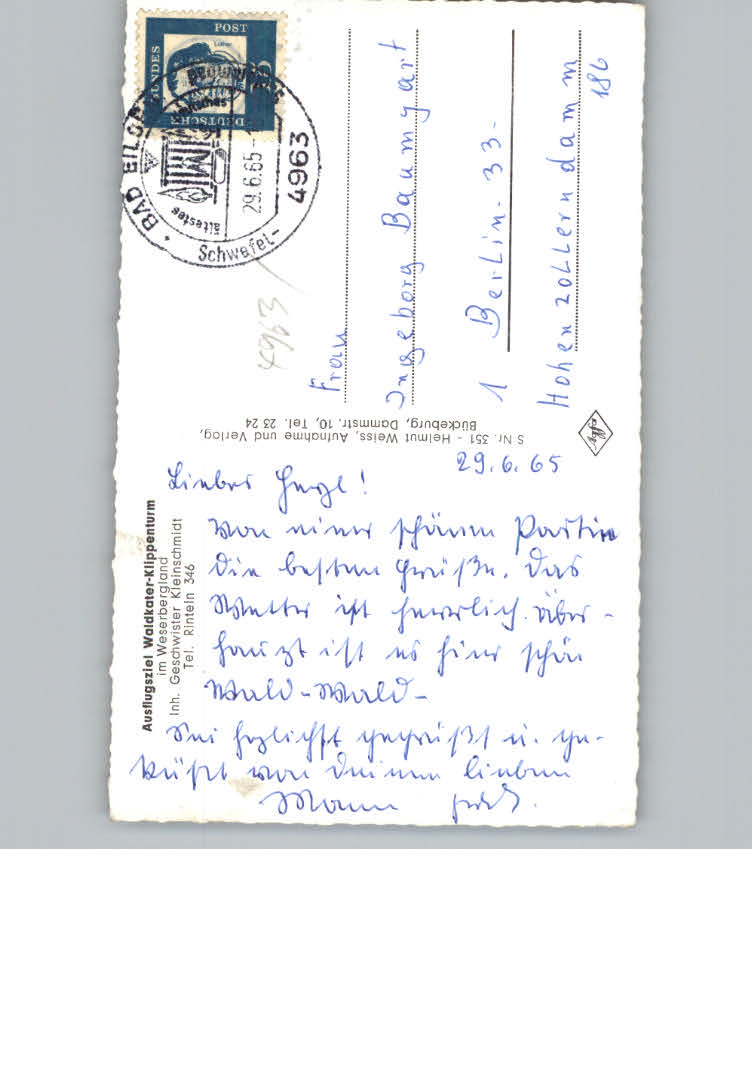 Ausflugsziel Waldkater-Klippenturm
im Weserbergland
Inh. Geschwister Kleinschmidt
Tel. Rinteln 346
29.6.65
Liebes
von einer schönen Partie
die besten Grüße. Das
Wetter ist herrlich. Über-
haupt ist es hier schön
Wald-Wald-
Sei herzlichst gegrüßt u. ge-
küßt von Deinem lieben
Mann
S Nr. 351 - Helmut Weiss, Aufnahme und Verlag,
Bückeburg, Dammstr. 10, Tel. 23 24
DEUTSCHE BUNDESPOST
Luther
BAD EILSEN
4963
29.6.65
Schwefel-
ältestes
4963
Frau
Ingeborg Baumgart
1 Berlin-33-
Hohenzollerndamm
186